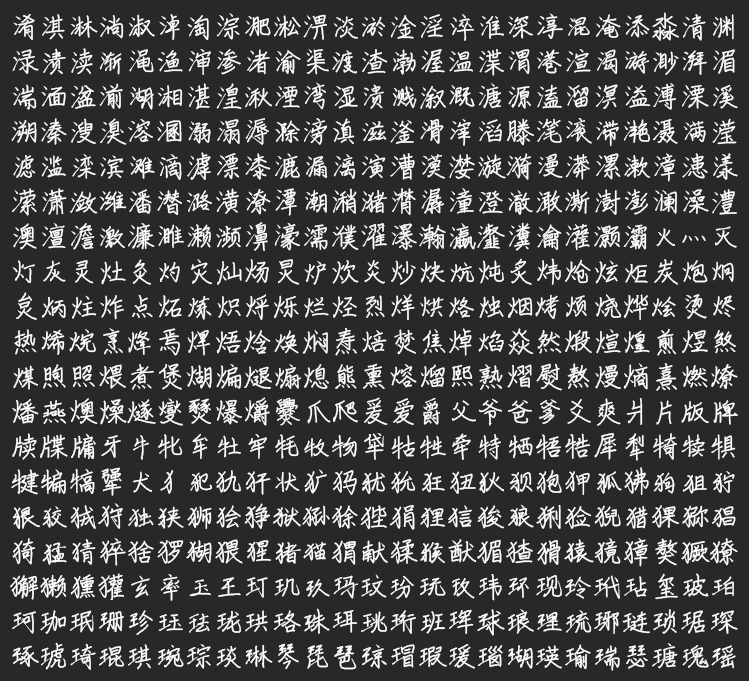 淆淇淋淌淑淖淘淙淝淞淠淡淤淦淫淬淮深淳混淹添淼清渊
渌渍渎渐渑渔渖渗渚渝渠渡渣渤渥温渫渭港渲渴游渺湃湄
湍湎湓湔湖湘湛湟湫湮湾湿溃溅溆溉溏源溘溜溟溢溥溧溪
溯溱溲溴溶溷溺溻溽滁滂滇滋滏滑滓滔滕滗滚滞滟滠满滢
滤滥滦滨滩滴滹漂漆漉漏漓演漕漠漤漩漪漫漭漯漱漳漶漾
潆潇潋潍潘潜潞潢潦潭潮潲潴潸潺潼澄澈澉澌澍澎澜澡澧
澳澶澹激濂濉濑濒濞濠濡濮濯瀑瀚瀛瀣瀵瀹灌灏灞火灬灭
灯灰灵灶灸灼灾灿炀炅炉炊炎炒炔炕炖炙炜炝炫炬炭炮炯
炱炳炷炸点炻炼炽烀烁烂烃烈烊烘烙烛烟烤烦烧烨烩烫烬
热烯烷烹烽焉焊焐焓焕焖焘焙焚焦焯焰焱然煅煊煌煎煜煞
煤煦照煨煮煲煳煸煺煽熄熊熏熔熘熙熟熠熨熬熳熵熹燃燎
燔燕燠燥燧燮燹爆爝爨爪爬爰爱爵父爷爸爹爻爽爿片版牌
牍牒牖牙牛牝牟牡牢牦牧物牮牯牲牵特牺牾牿犀犁犄犊犋
犍犏犒犟犬犭犯犰犴状犷犸犹狁狂狃狄狈狍狎狐狒狗狙狞
狠狡狨狩独狭狮狯狰狱狲狳狴狷狸狺狻狼猁猃猊猎猓猕猖
猗猛猜猝猞猡猢猥猩猪猫猬献猱猴猷猸猹猾猿獍獐獒獗獠
獬獭獯獾玄率玉王玎玑玖玛玟玢玩玫玮环现玲玳玷玺玻珀
珂珈珉珊珍珏珐珑珙珞珠珥珧珩班珲球琅理琉琊琏琐琚琛
琢琥琦琨琪琬琮琰琳琴琵琶琼瑁瑕瑗瑙瑚瑛瑜瑞瑟瑭瑰瑶